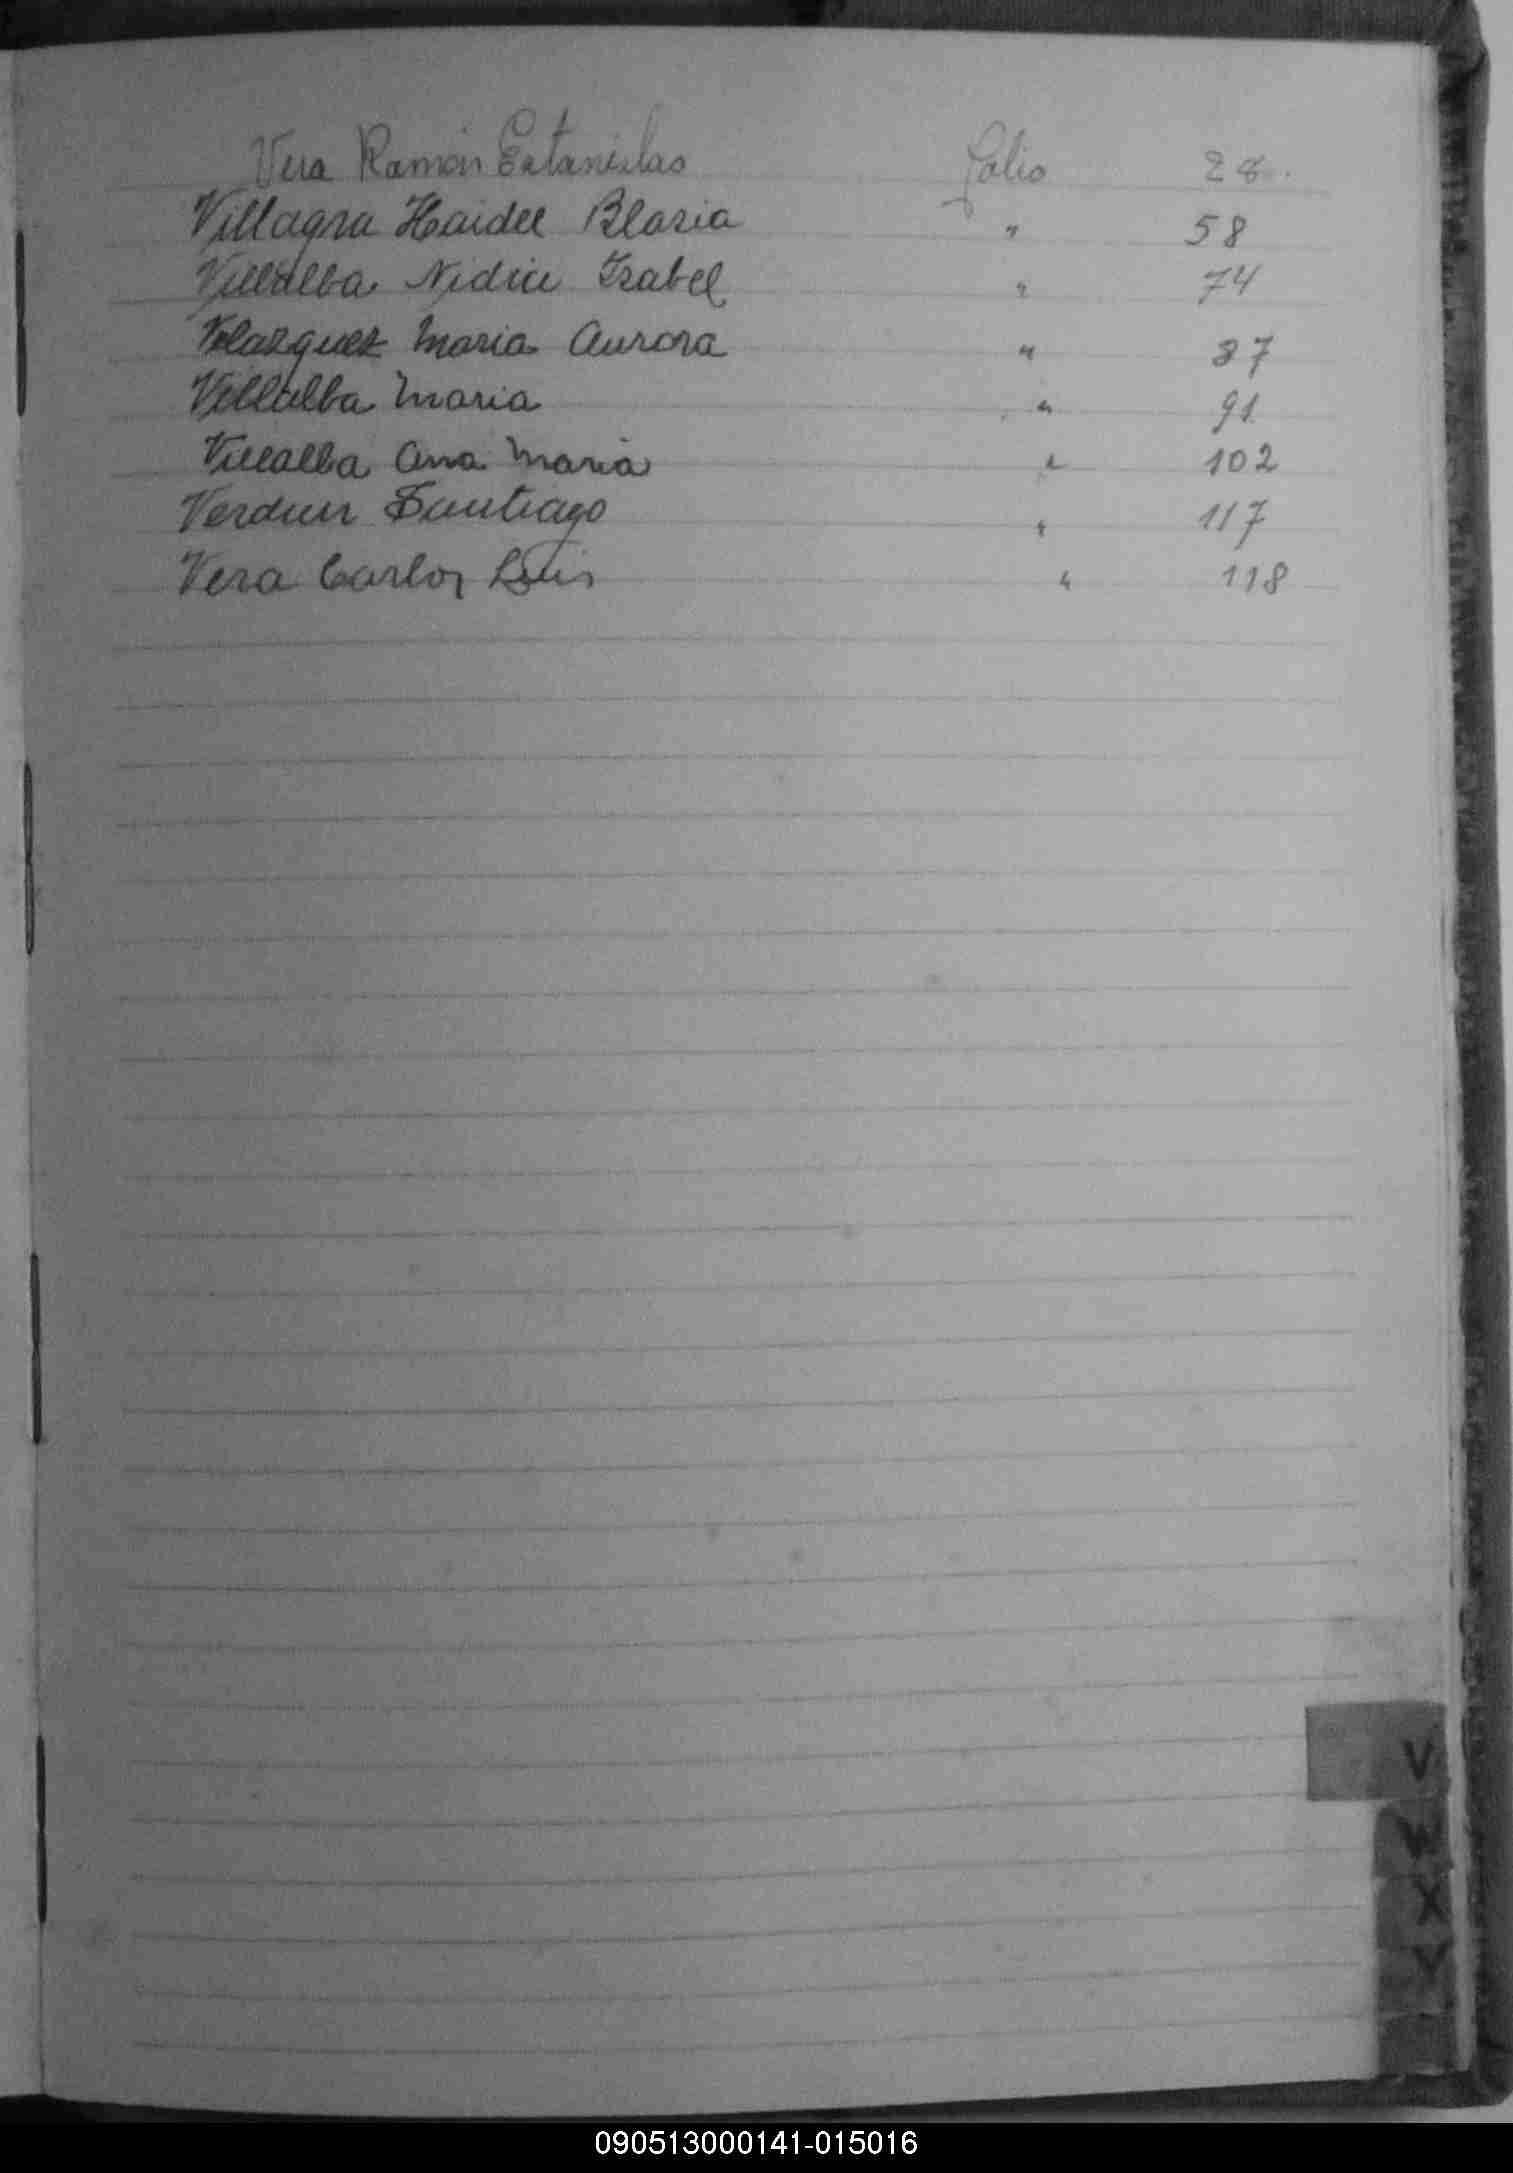 Vera Ramón Estanislao folio 28.
Villagra Haidee Blasia " 58
Villalba Nidia Isabel " 74
Velazquez Maria Aurora " 87
Villalba Maria " 91
Villalba Ana Maria " 102
Verdun Santiago " 117
Vera Carlos Luis " 118
V
W
X
Y
090513000141-015016